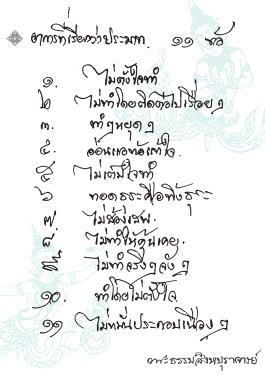 อาการที่เรียกว่าประมาท ๑๑ ข้อ
๑. ไม่ตั้งใจทำ
๒ ไม่ทำโดยติดต่อไปเรื่อยๆ
๓. ทำๆหยุดๆ
๔. อ่อนแอท้อแท้ใจ.
๕ ไม่เต็มใจทำ
๖ ทอดธุระคือทิ้งธุระ
๗. ไม่ส้องเสพ.
๘. ไม่ทำให้คุ้นเคย.
๙ ไม่ทำจริงๆจังๆ
๑๐. ทำโดยไม่ตั้งใจ
๑๑ ไม่หมั่นประกอบเนืองๆ
พระธรรมสิงหบุราจารย์